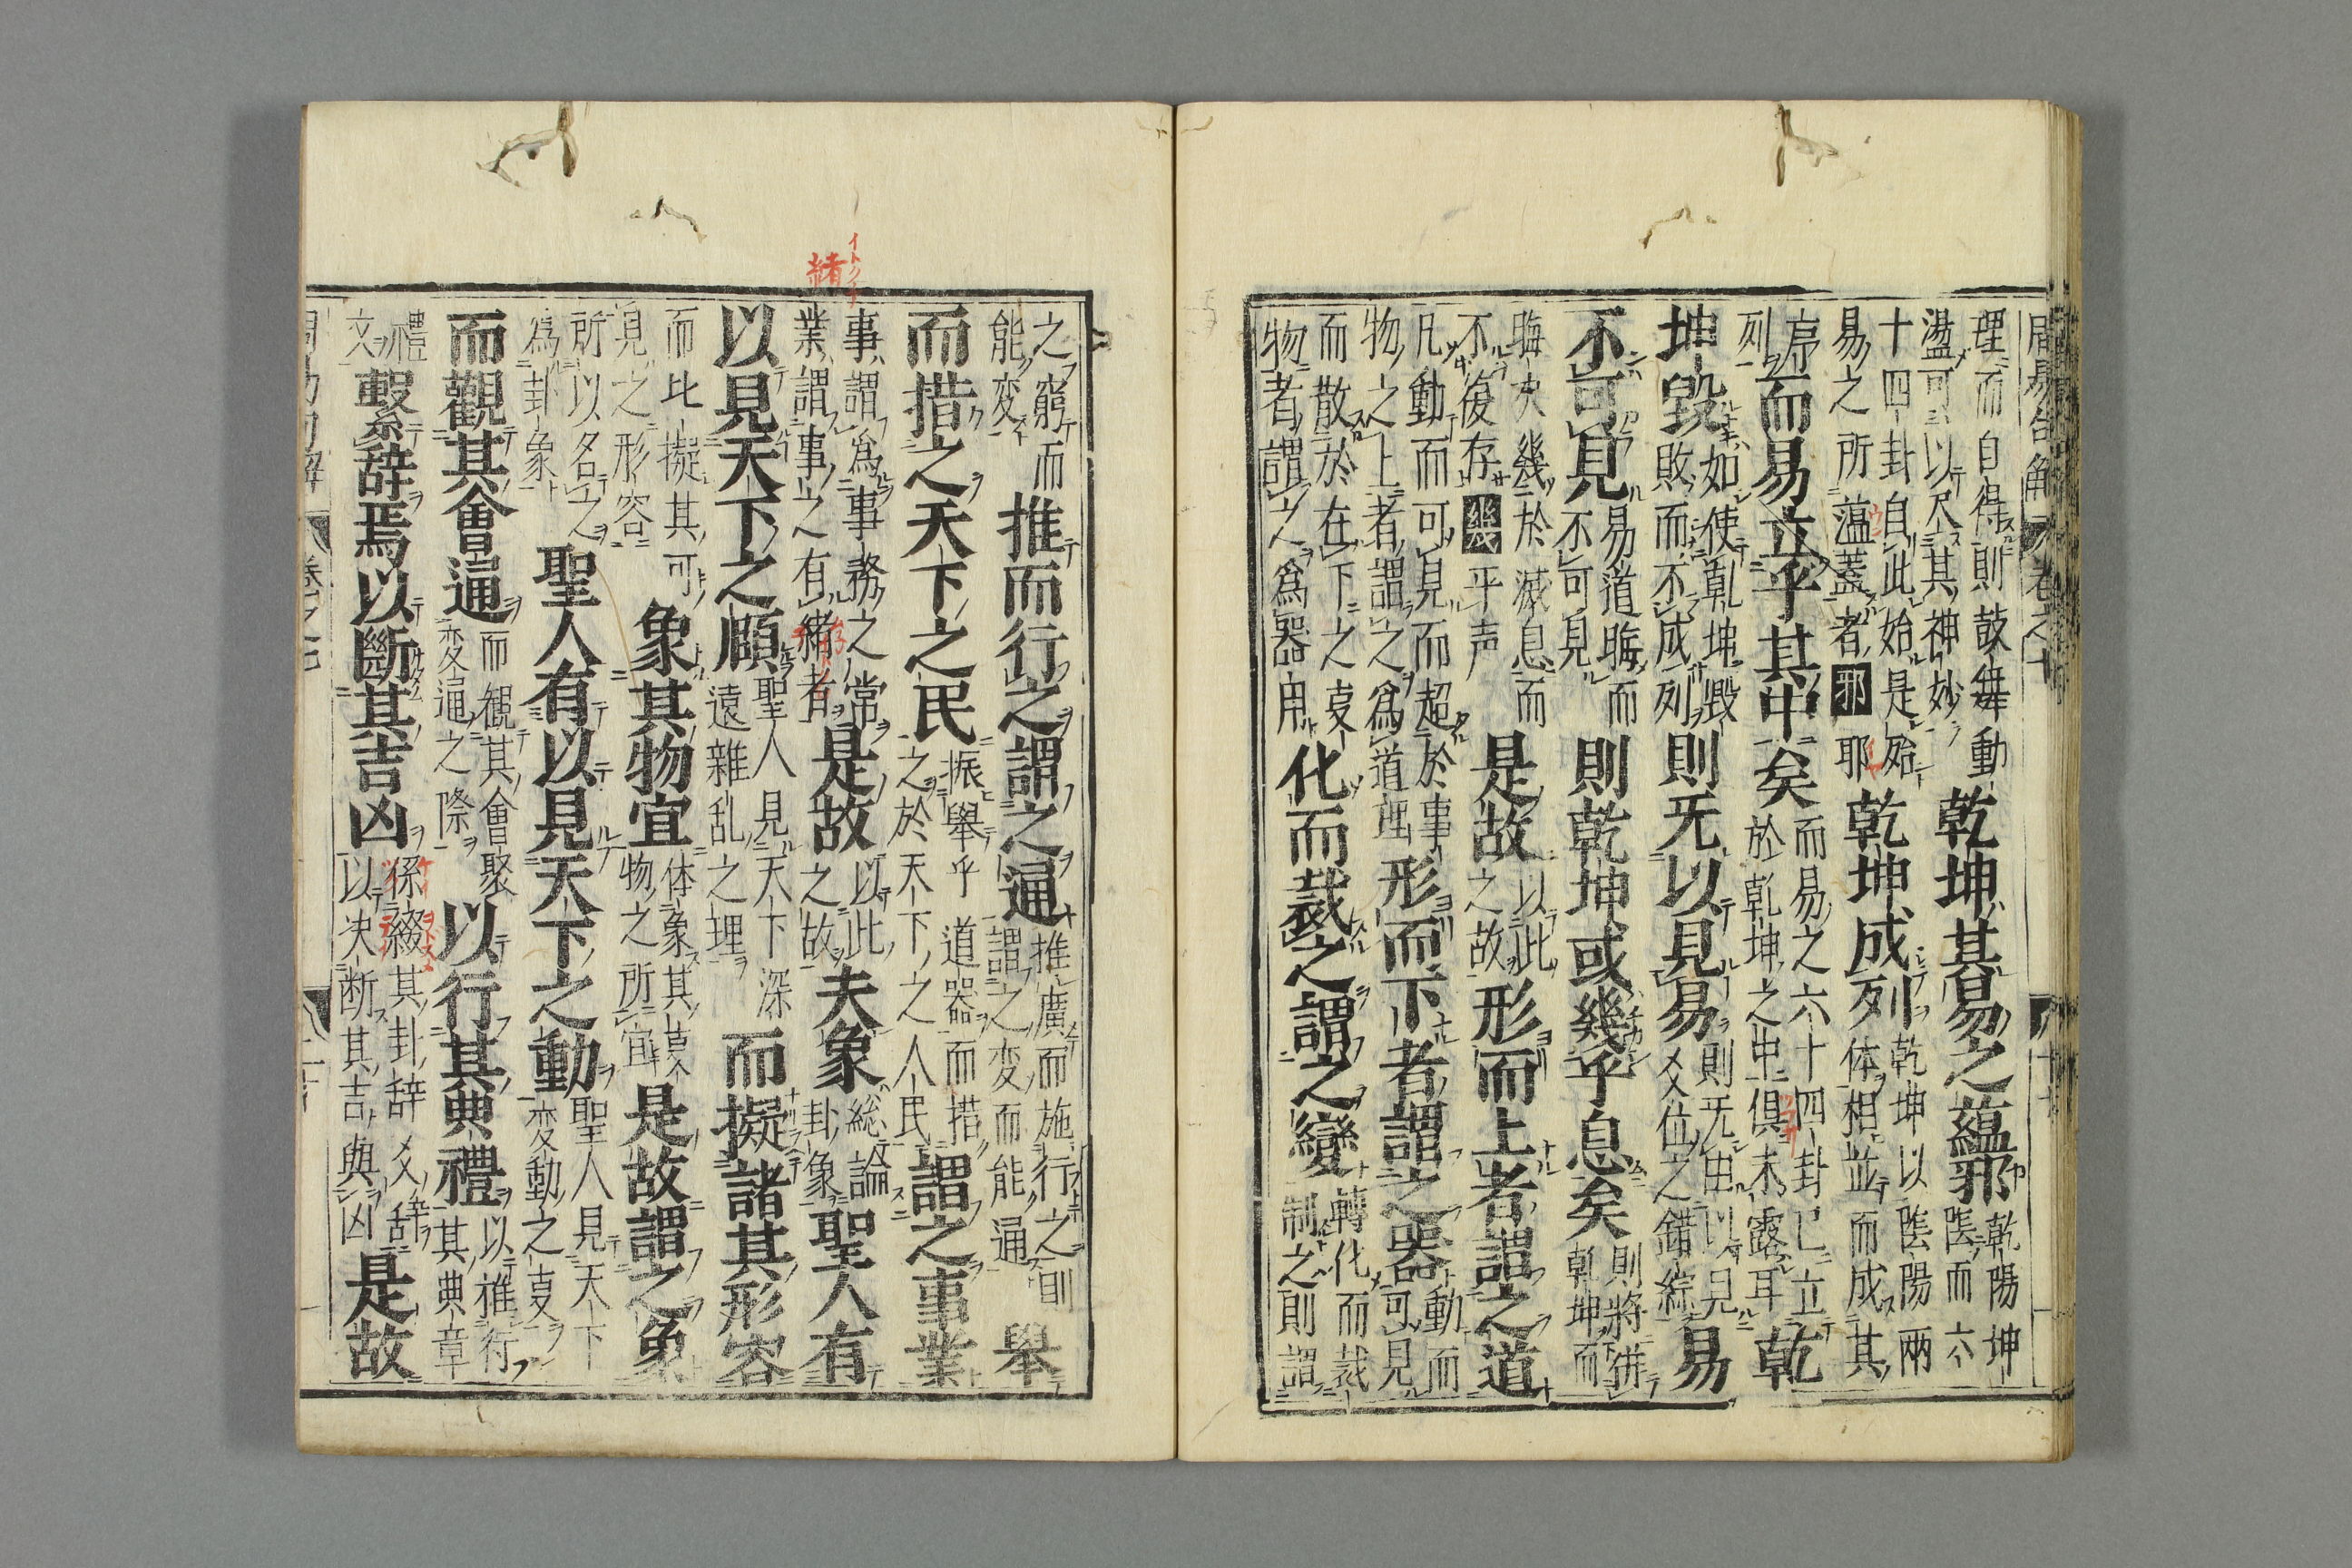 理而自得則鼓舞動
盪可以尽其神妙
乾坤其易之蘊邪
乾陽坤
陰而六
十四卦自此始是殆
易之所薀蓋者邪耶
乾坤成列
乾坤以陰陽兩
体相並而成其
序
列
而易立乎其中矣
而易之六十四卦已立
於乾坤之中俱未露耳
乾
坤毀
如使乾坤毀
敗而不成列
則旡以見易
則旡由以見
爻位之錯綜
易
不可見
易道晦而
不可見
則乾坤或幾乎息矣
則將併
乾坤而
晦夫幾於滅息而
不復存幾平声
是故
以此
之故
形而上者謂之道
凡動而可見而超於事
物之上者謂之為道理
形而下者謂之器
動而
可見
而散於在下之
物者謂之為器用
化而裁之謂之變
轉化而裁
制之則謂
之窮而
能変
推而行之謂之通
推廣而施行之
謂之変而能通
舉
而措之天下之民
振舉乎道器而措
之於天下之人民
謂之事業
事謂為事務之常
業謂事之有緒者
緒
是故
以此
之故
夫象
総論
卦象
聖人有
以見天下之賾
聖人見天下深
遠雜乱之理
而擬諸其形容
而比擬其可
見之形容
象其物宜
体象其
物之所宜
是故謂之象
所以名之
為卦象
聖人有以見天下之動
聖人見天下
変動之
而觀其會通
而観其會聚
変通之際
以行其典禮
以推行
其典章
禮
文
繫辞焉以斷其吉凶
係綴其卦辞爻辞
以决断其吉與凶
是故